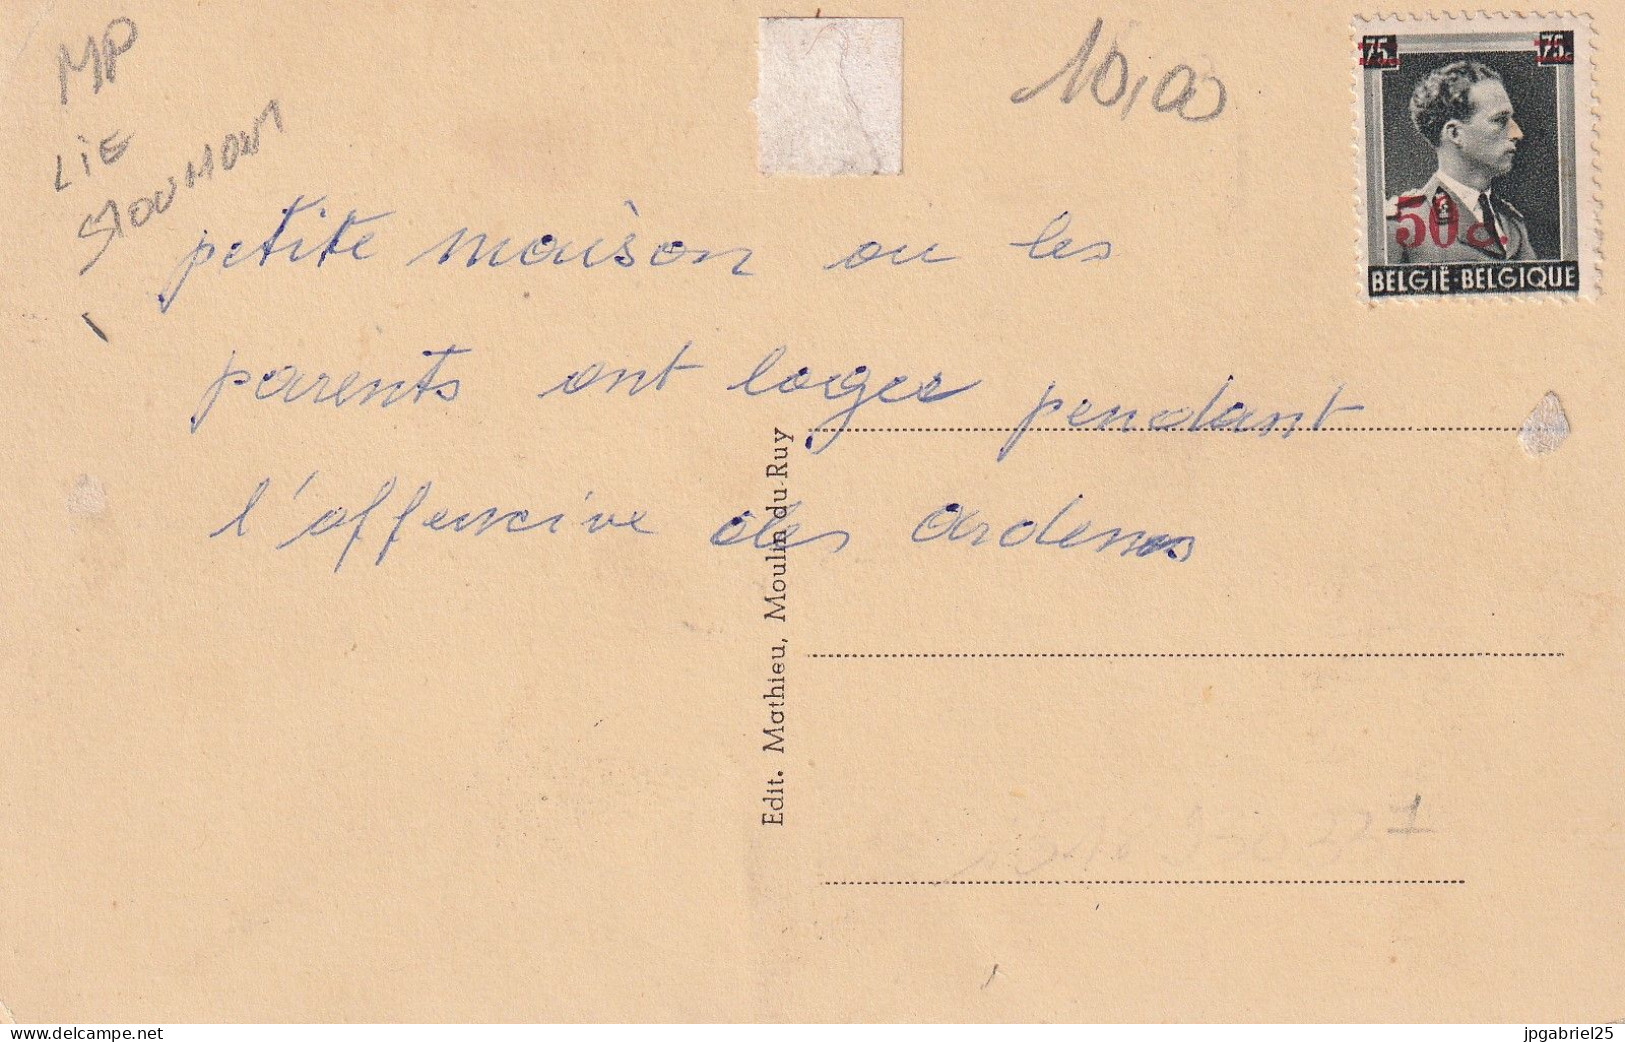 MP
LiE
STOUMONT
10,00
75c
75c
50c.
BELGIË-BELGIQUE
petite maison ou les
parents ont loger pendant
l'offencive des ardennes
Edit. Mathieu, Moulin du Ruy
delcampe.net
jpgabriel25